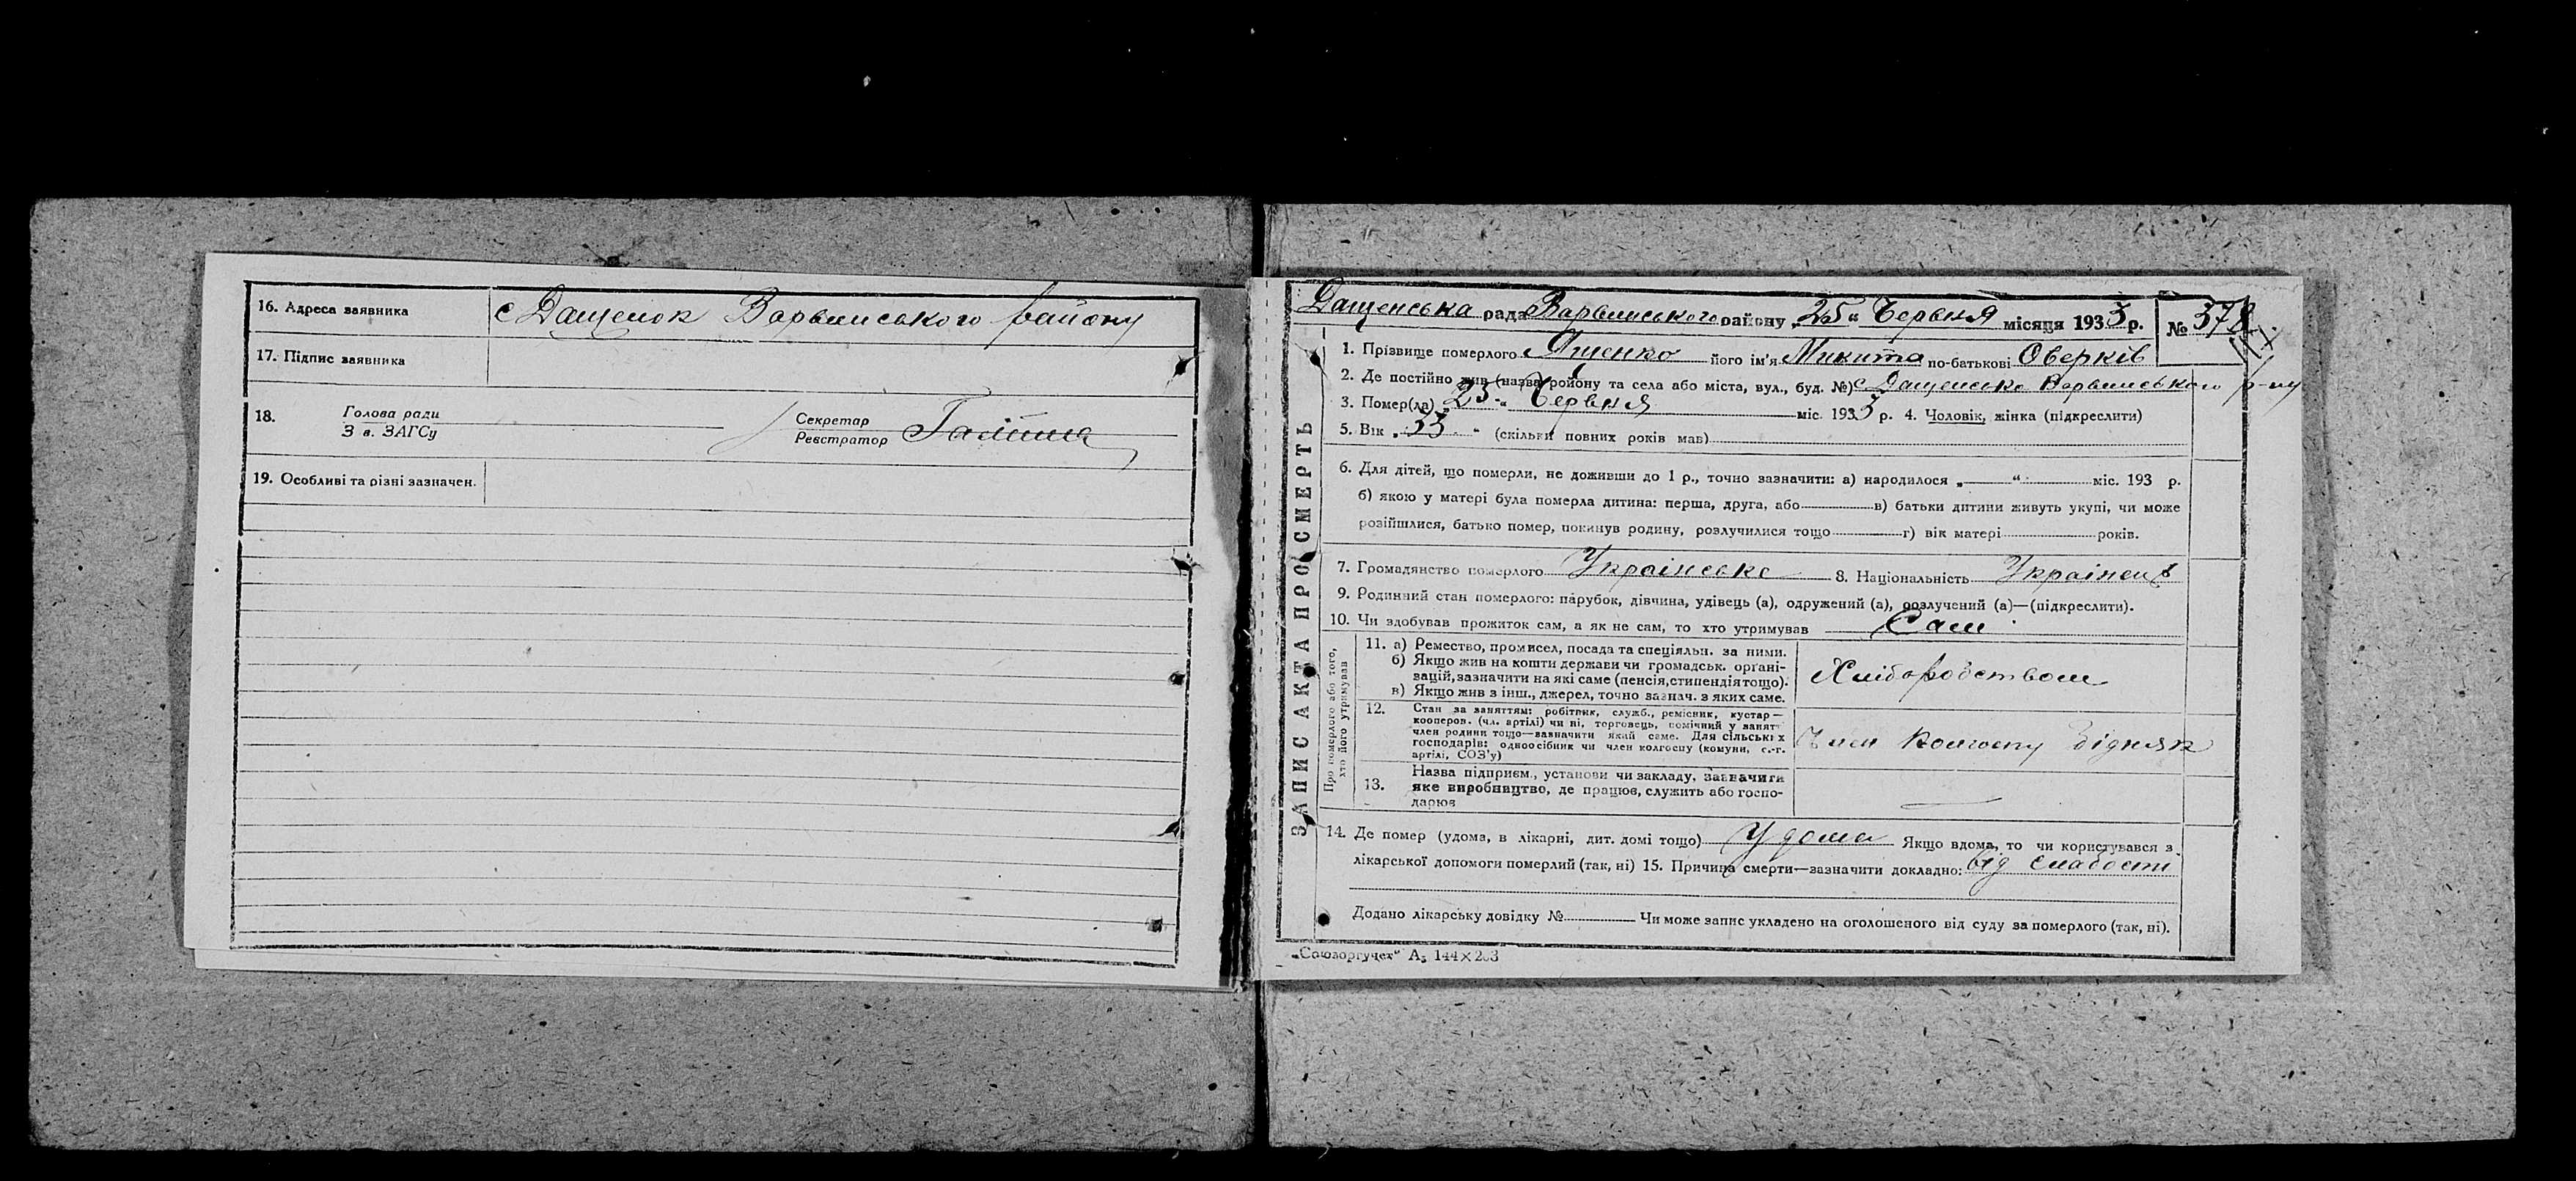 16. Адреса заявника с Дащенок Варвинського району
17. Підпис заявника
18. Голова ради
З в. ЗАГСу
Секретар
Реєстратор
19. Особливі та різні зазначен.
Дащенська рада Варвинського району „25“ Червня місяця 1933 р. № 378
ЗАПИС АКТА ПРО СМЕРТЬ
1. Прізвище померлого Ященко його ім'я Микита по-батькові Оверків
2. Де постійно жив (назва району та села або міста, вул., буд. №) с Дащенько Варвинського р-ну
3. Помер(ла) „25“ Червня міс. 1933 р. 4. Чоловік, жінка (підкреслити)
5. Вік „33“ (скільки повних років мав)
6. Для дітей, що померли, не доживши до 1 р., точно зазначити: а) народилося „ “ міс. 193 р.
б) якою у матері була померла дитина: перша, друга, або в) батьки дитини живуть укупі, чи може
розійшлися, батько помер, покинув родину, розлучилися тощо г) вік матері років.
7. Громадянство померлого Українське 8. Національність Українець
9. Родинний стан померлого: парубок, дівчина, удівець (а), одружений (а), розлучений (а)—(підкреслити).
10. Чи здобував прожиток сам, а як не сам, то хто утримував Сам
Про померлого або того,
хто його утримував
11. а) Ремество, промисел, посада та спеціяльн. за ними.
б) Якщо жив на кошти держави чи громадськ. органі-
зацій, зазначити на які саме (пенсія, стипендія тощо).
в) Якщо жив з інш., джерел, точно зазнач. з яких саме.
Хліборобством
12. Стан за заняттям: робітник, служб., ремісник, кустар—
кооперов. (чл. артілі) чи ні, торговець, помічний у занятт
член родини тощо—зазначити який саме. Для сільських
господарів: одноосібник чи член колгоспу (комуни, с.-г.
артілі, СОЗ'у)
Член колгоспу бідняк
13. Назва підприєм., установи чи закладу, зазначити
яке виробництво, де працює, служить або госпо-
дарює
14. Де помер (удома, в лікарні, дит. домі тощо) У дома Якщо вдома, то чи користувався з
лікарської допомоги померлий (так, ні) 15. Причина смерти—зазначити докладно: від слабости
Додано лікарську довідку № Чи може запис укладено на оголошеного від суду за померлого (так, ні).
„Союзоргучет“ А₅ 144×203